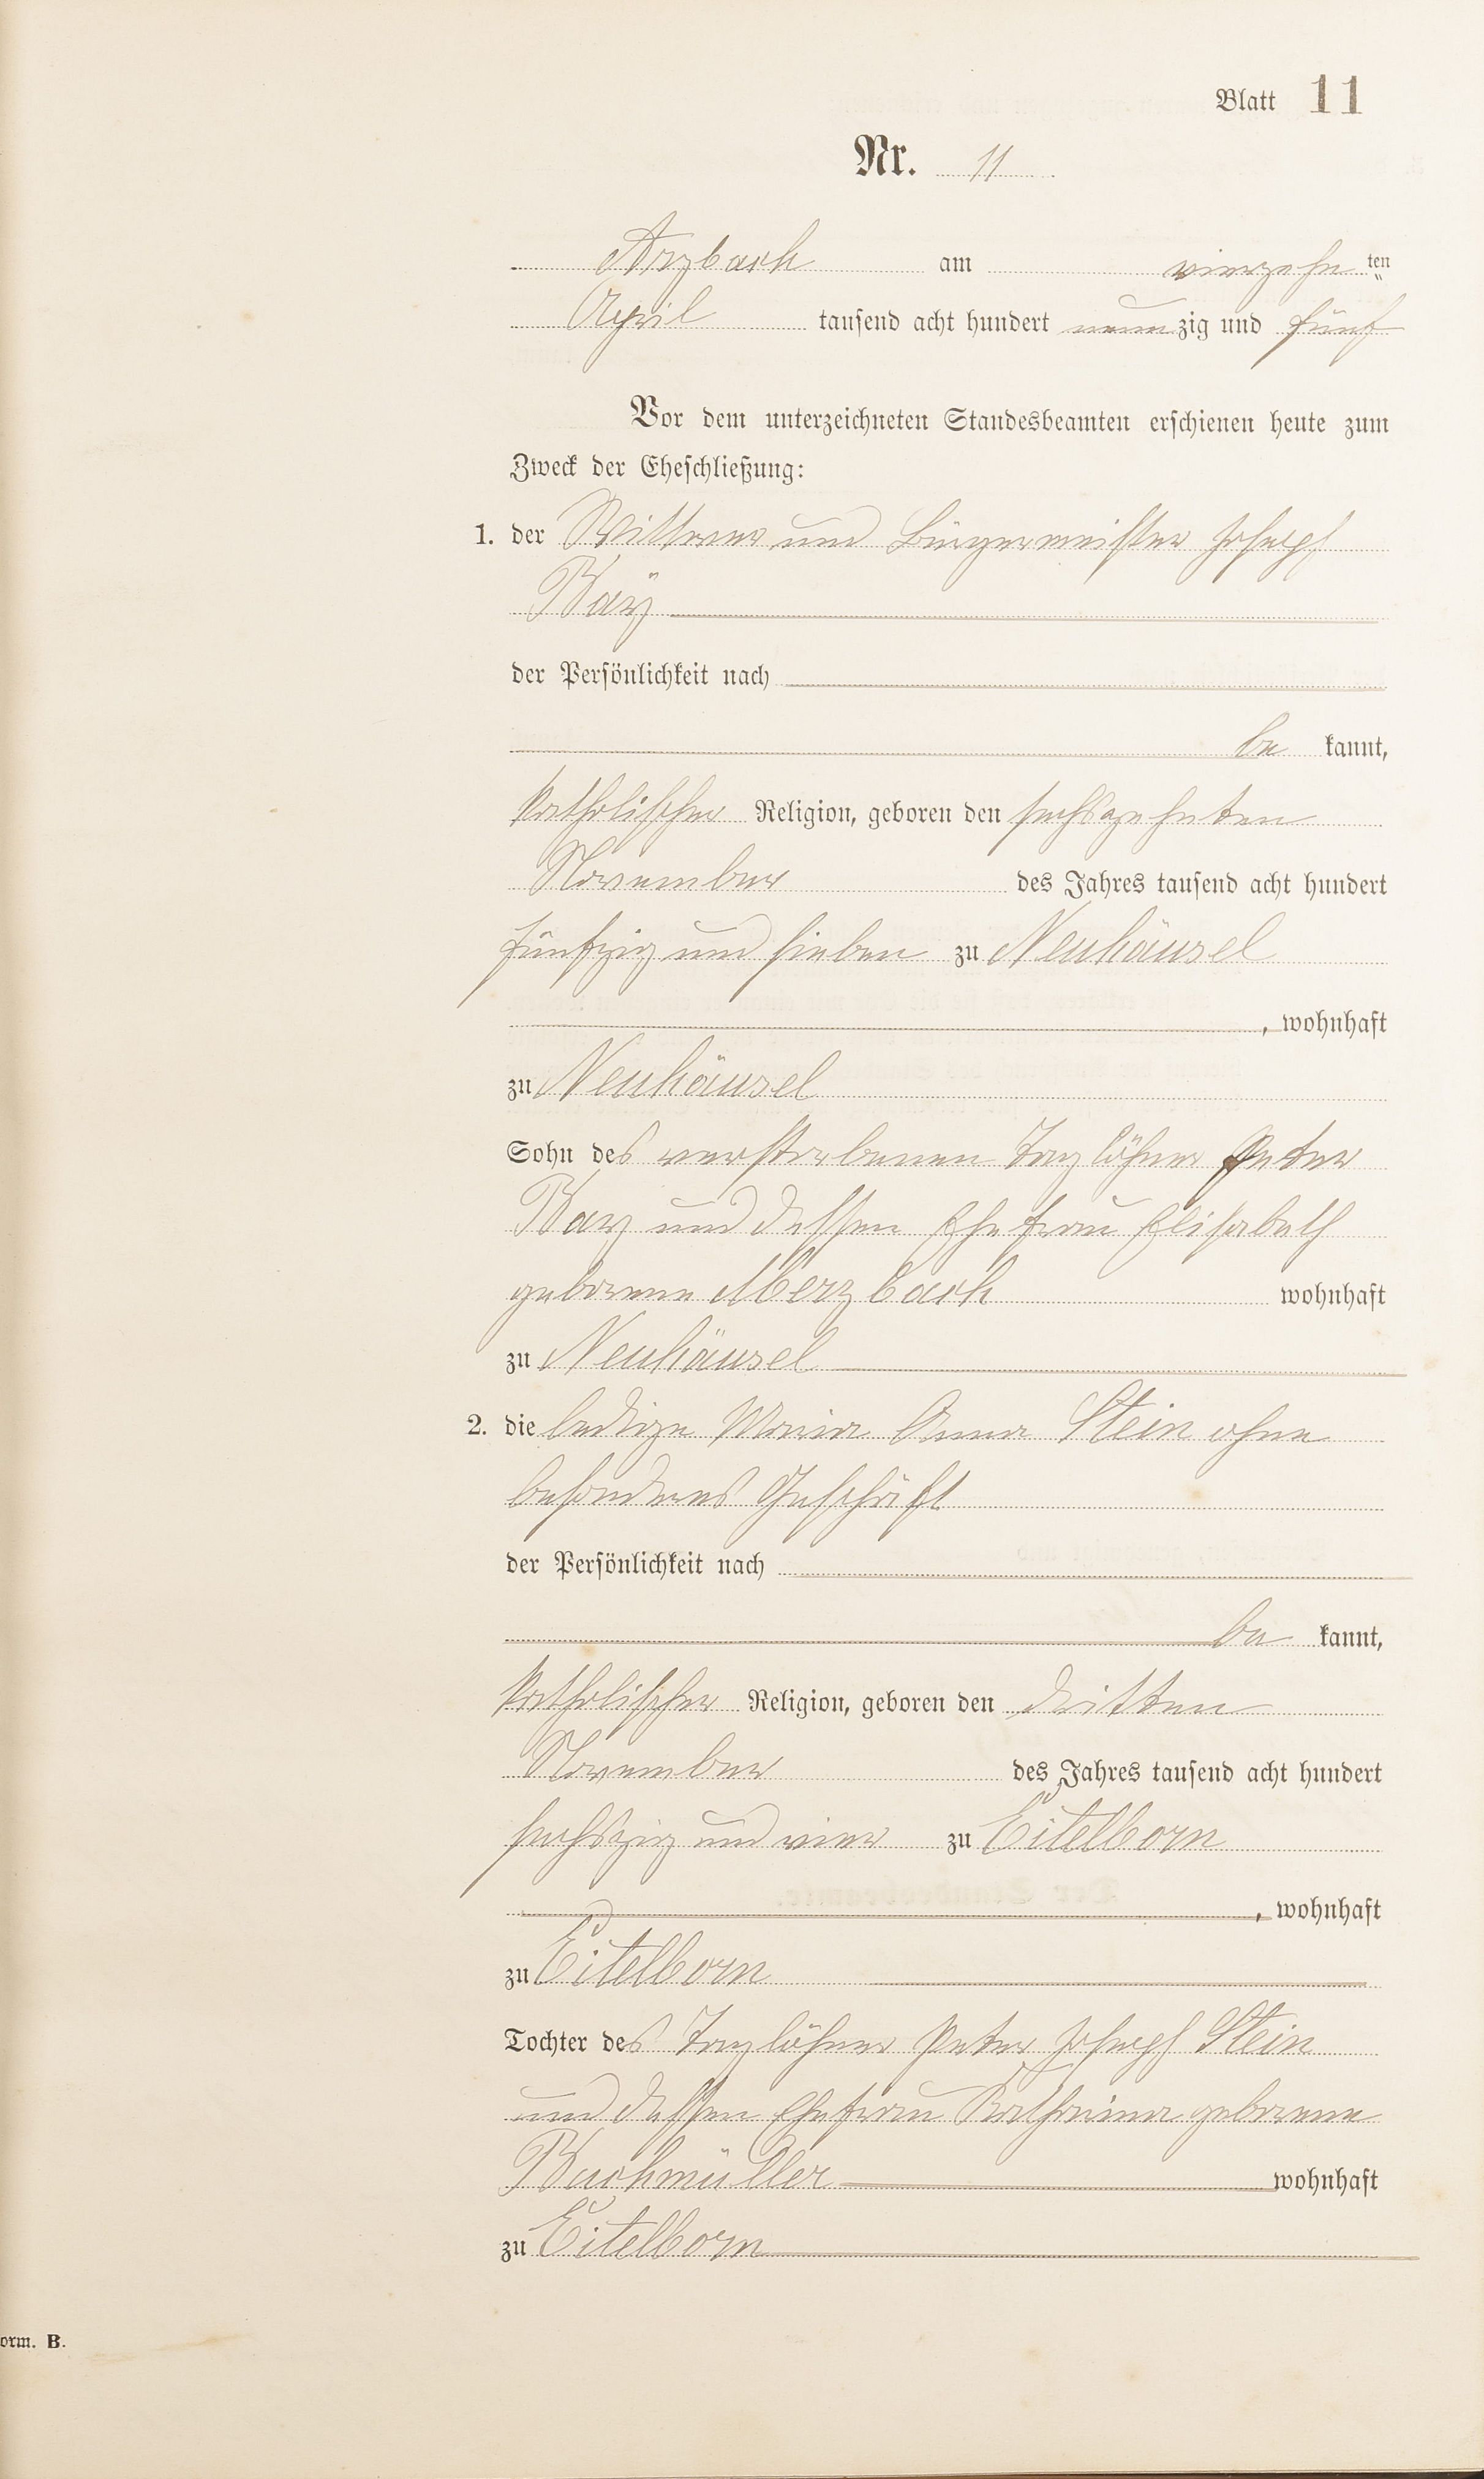 Blatt 11
Nr. 11
Arzbach am vierzehn ten
April tausend acht hundert neunzig und fünf
Vor dem unterzeichneten Standesbeamten erschienen heute zum
Zweck der Eheschließung:
1. der Wittwer und Bürgermeister Joseph
Baÿ
der Persönlichkeit nach
be kannt,
katholischer Religion, geboren den sechszehnten
November des Jahres tausend acht hundert
fünfzig und sieben zu Neuhäusel
, wohnhaft
zu Neuhäusel
Sohn des verstorbenen Taglöhner Peter
Bay und dessen Ehefrau Elisabeth
geborene Merzbach wohnhaft
zu Neuhäusel
2. die ledige Maria Anna Stein ohne
besonderes Geschäft
der Persönlichkeit nach
be kannt,
katholischer Religion, geboren den dritten
November des Jahres tausend acht hundert
sechszig und vier zu Eitelborn
, wohnhaft
zu Eitelborn
Tochter des Taglöhner Peter Joseph Stein
und dessen Ehefrau Katharina geborene
Bachmüller wohnhaft
zu Eitelborn
orm. B.